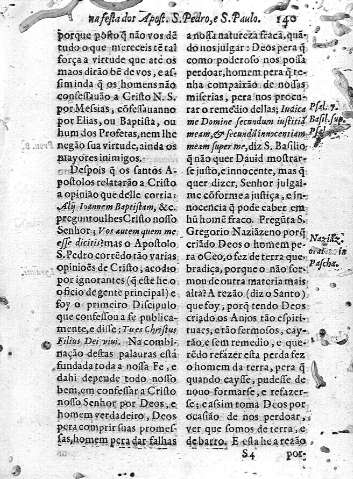 na festa dos Apost. S. Pedro, e S. Paulo. 140
porque posto q̃ não vos dẽ
tudo o que mereceis tẽ tal
força a virtude que até os
maos dirão bẽ de vos, e as-
sim inda q̃ os homens não
confessauão a Cristo N. S.
por Messias, cõfessauanno
por Elias, ou Baptista, ou
hum dos Profetas, nem lhe
negão sua virtude, ainda os
mayores inimigos.
Despois q̃ os santos A-
postolos relatarão a Cristo
a opinião que delle corria:
Alij Ioannem Baptistam, &c.
preguntoulhes Cristo nosso
Senhor; Vos autem quem me
esse dicitis? mas o Apostolo
S. Pedro corrẽdo tão varias
opiniões de Cristo, acodio
por ignorantes (q̃ este he o
officio de gente principal) e
foy o primeiro Discipulo
que confessou a fe publica-
mente, e disse: Tu es Christus
Filius Dei viui. Na combi-
nação destas palauras está
fundada toda a nossa Fe, e
dahi depende todo nosso
bem, em confessar a Cristo
nosso Senhor por Deos, e
homem verdadeiro, Deos
pera comprir suas promes-
sas, homem pera dar falhas
a nossa natureza fraca, quã-
do nos julgar: Deos pera q̃
como poderoso nos possa
perdoar, homem pera q̃ te-
nha compaixão de nossas
miserias, pera nos procu-
rar o remedio dellas; Iudica
me Domine secundum iustitiã
meam, & secundũ innocentiam
meam super me, diz S. Basilio,
q̃ não quer Dauid mostrar-
se justo, e innocente, mas q̃
quer dizer, Senhor julgai-
me cõforme a justiça, e in-
nocencia q̃ pode caber em
hũ homẽ fraco. Pregũta S.
Gregorio Naziãzeno porq̃
criãdo Deos o homem pe-
ra o Ceo, o fez de terra que-
bradiça, porque o não for-
mou de outra materia mais
alta? A rezão (diz o Santo)
que foy, porq̃ tendo Deos
criado os Anjos tão espiri-
tuaes, e tão fermosos, cay-
rão, e sem remedio, e que-
rẽdo refazer esta perda fez
o homem da terra, pera q̃
quando caysse, pudesse de
nouo formarse, e refazer-
se; e assim toma Deos por
ocasião de nos perdoar,
ver que somos de terra, e
de barro. E esta he a rezão
Psal. 7.
Basil. sup.
Naziãz.
orat. in
Pascha.
S4 por-